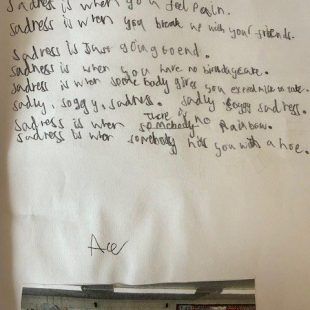 Sadness is when you feel pain.
Sadness is when you break up with your friends.
Sadness is Just going to end.
Sadness is when you have no birthday cake.
Sadness is when some body gives you expired milk to take.
Sadly, soggy, sadness. Sadly soggy sadness.
Sadness is when there is no rainbow.
Sadness is when somebody hits you with a hoe.
Ace